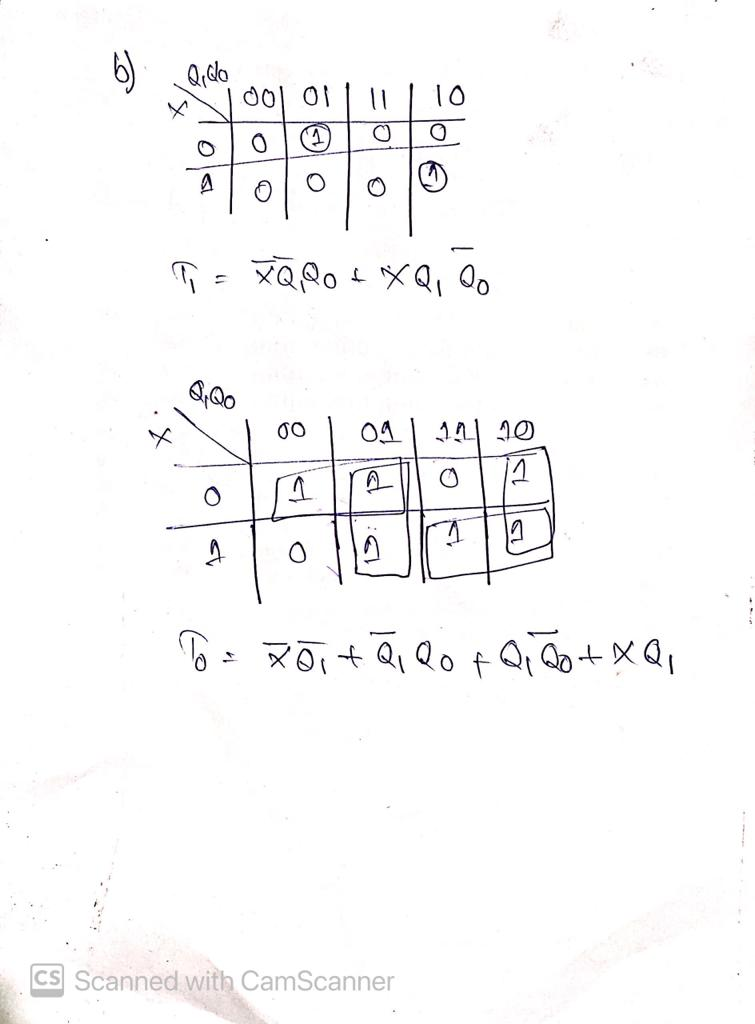 b)
Q₁Q₀
X 00 01 11 10
0 0 1 0 0
1 0 0 0 1
T₁ = X̅Q̅₁Q₀ + XQ₁Q̅₀
Q₁Q₀
X 00 01 11 10
0 1 1 0 1
1 0 1 1 1
T₀ = X̅Q̅₁ + Q̅₁Q₀ + Q₁Q̅₀ + XQ₁
CS Scanned with CamScanner